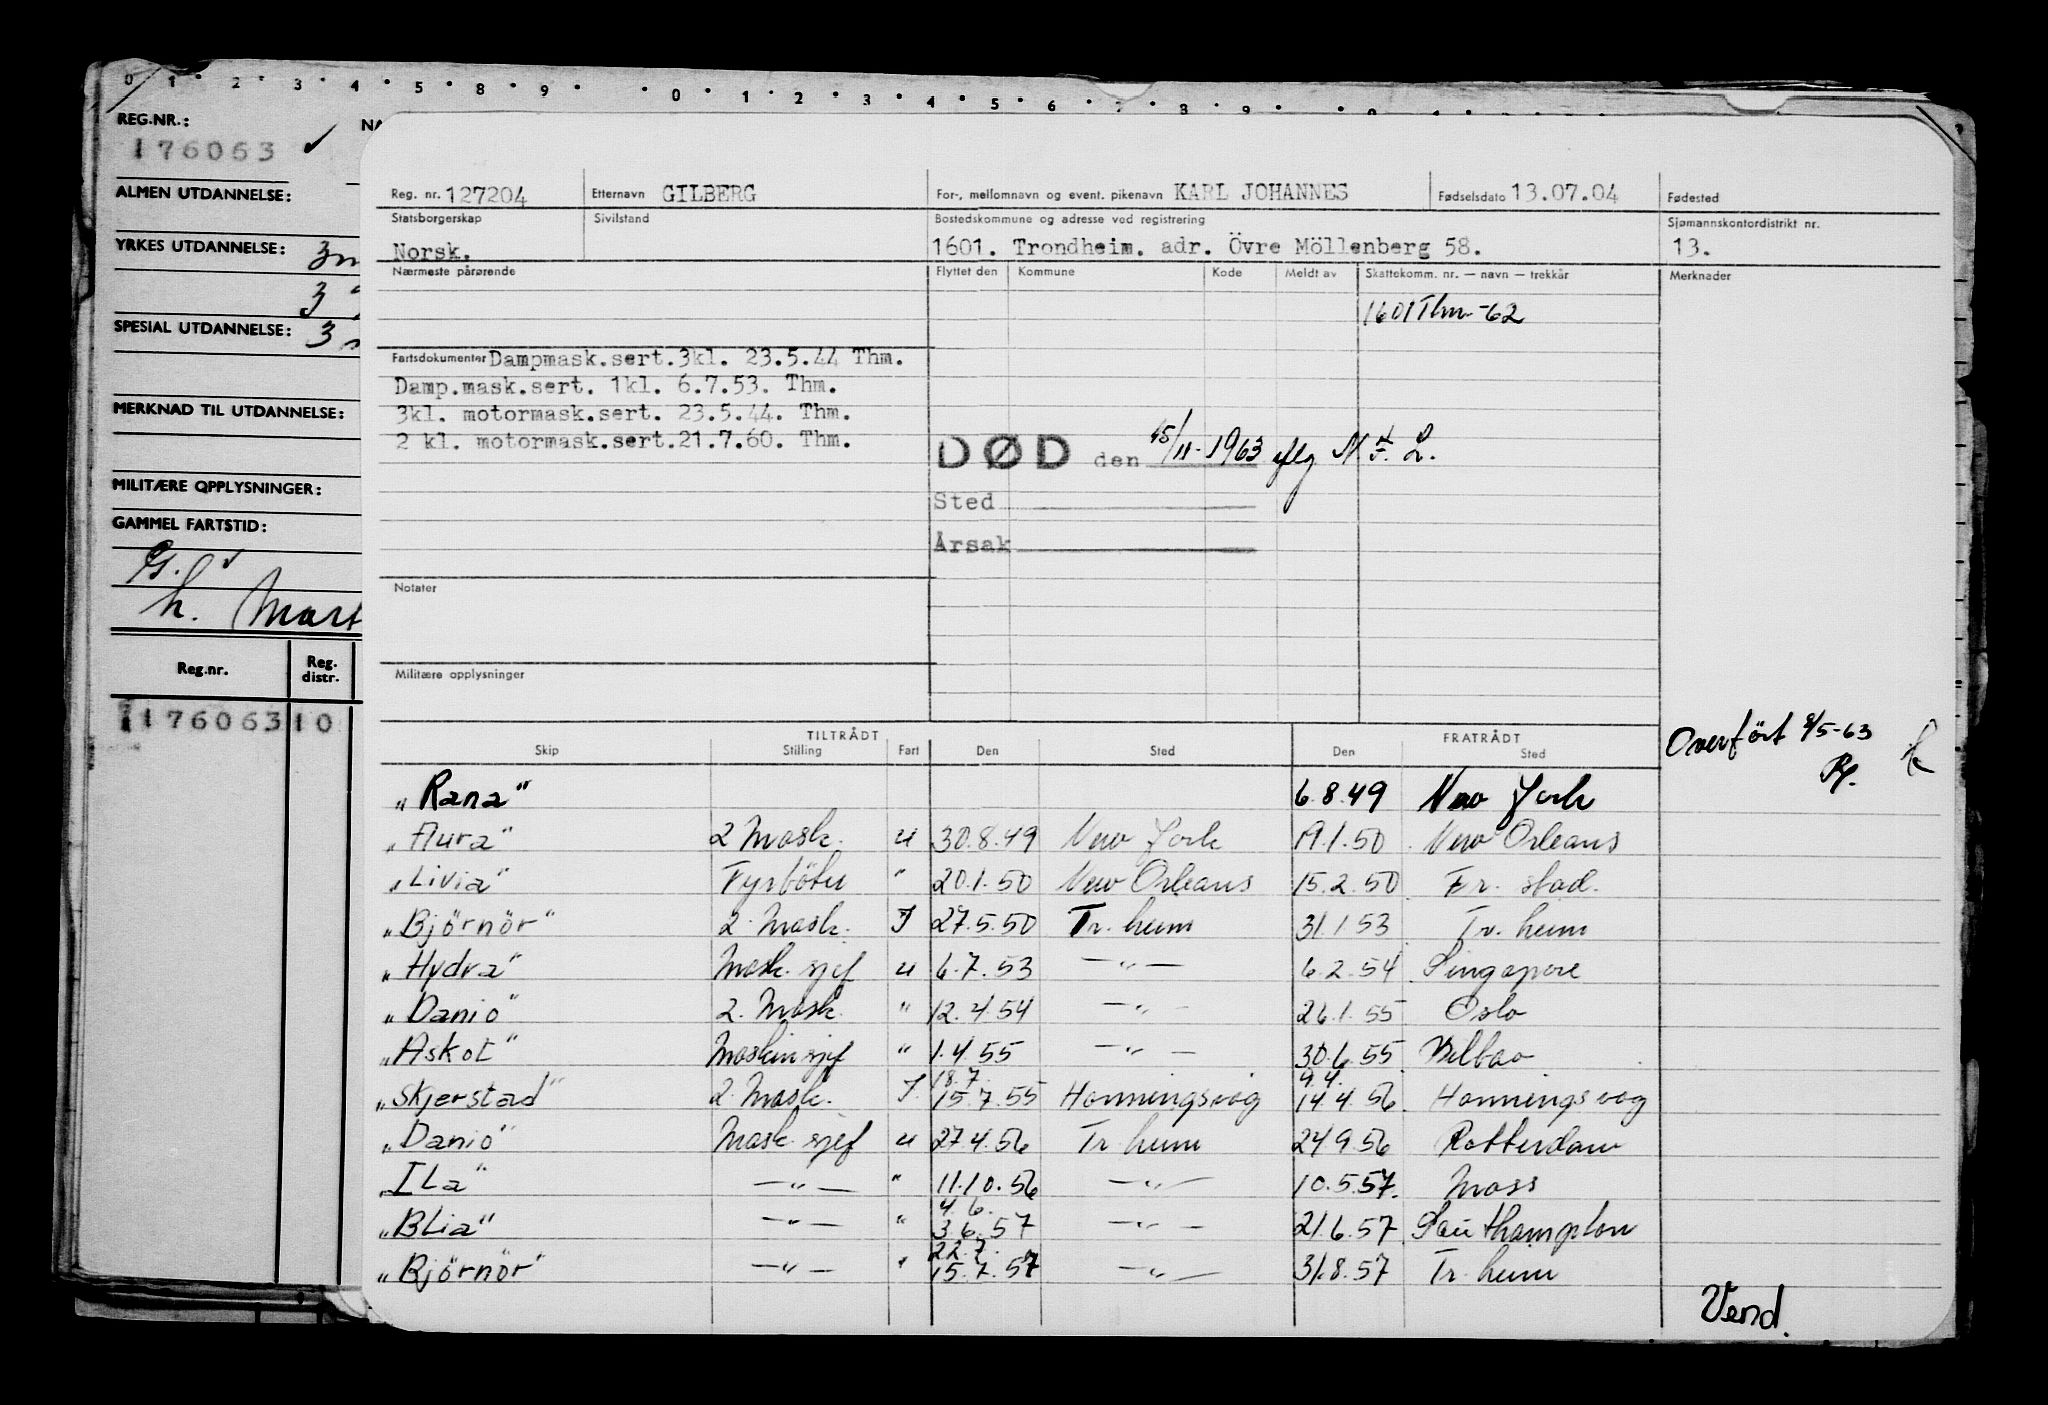 0 1 2 3 4 5 8 9 0 1 2 3 4 5 6 7 8 9 0
REG.NR.:
176063
ALMEN UTDANNELSE:
YRKES UTDANNELSE:
3
SPESIAL UTDANNELSE:
3
MERKNAD TIL UTDANNELSE:
MILITÆRE OPPLYSNINGER:
GAMMEL FARTSTID:
h. Mart
Reg.nr. Reg. distr.
176063 10
Reg. nr. 127204 Etternavn GILBERG For-, mellomnavn og event. pikenavn KARL JOHANNES Fødselsdato 13.07.04 Fødested
Statsborgerskap Sivilstand Bostedskommune og adresse ved registrering Sjømannskontordistrikt nr.
Norsk. 1601. Trondheim. adr. Övre Möllenberg 58. 13.
Nærmeste pårørende Flyttet den Kommune Kode Meldt av Skattekomm. nr. — navn — trekkår Merknader
1601 Thm -62
Fartsdokumenter Dampmask.sert.3kl. 23.5.44 Thm.
Damp.mask.sert. 1kl. 6.7.53. Thm.
3kl. motormask.sert. 23.5.44. Thm.
2 kl. motormask.sert.21.7.60. Thm.
DØD den 15/11-1963 iflg
Sted
Årsak
Notater
Militære opplysninger
Overfört 8/5-63
TILTRÅDT FRATRÅDT
Skip Stilling Fart Den Sted Den Sted
"Rana" 6.8.49 New York
"Aura" 2 Mask. u 30.8.49 New York 19.1.50 New Orleans
"Livia" Fyrböter " 20.1.50 New Orleans 15.2.50 Fr. stad.
"Björnör" 2. Mask. I 27.5.50 Tr. heim 31.1.53 Tr. heim
"Hydra" Mask. sjef u 6.7.53 —"— 6.2.54 Singapore
"Danio" 2. Mask. " 12.4.54 —"— 26.1.55 Oslo
"Askot" Maskinsjef " 1.4.55 —"— 30.6.55 Bilbao
18.7. 9.4.
"Skjerstad" 2. Mask. I. 15.7.55 Honningsvåg 14.4.56 Honningsvåg
"Danio" Mask. sjef u 27.4.56 Tr. heim 24.9.56 Rotterdam
"ILa" —"— " 11.10.56 —"— 10.5.57. Moss
4.6.
"BLia" —"— " 3.6.57 —"— 21.6.57 Southampton
22.7.
"Björnör" —"— " 15.7.57 —"— 31.8.57 Tr. heim
Vend.